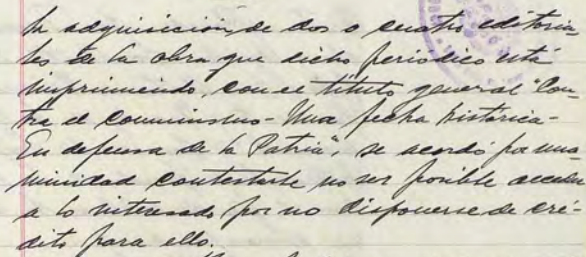 la adquisición, de dos o cuatro editoria-
les de la obra que dicho periodico está
imprimiendo, con el título general "Con-
tra el comunismo - Una fecha histórica -
En defensa de la Patria", se acordó por una-
nimidad contestarle no ser posible acceder
a lo interesado por no disponerse de cré-
dito para ello.